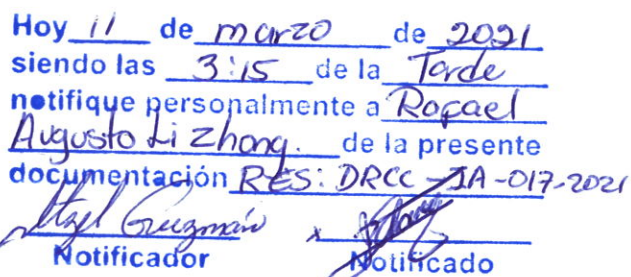 Hoy 11 de marzo de 2021
siendo las 3:15 de la Tarde
notifique personalmente a Rafael
Augusto Li Zhong. de la presente
documentación RES: DRCC-IA-017-2021
Itzel Guzmán x
Notificador Notificado